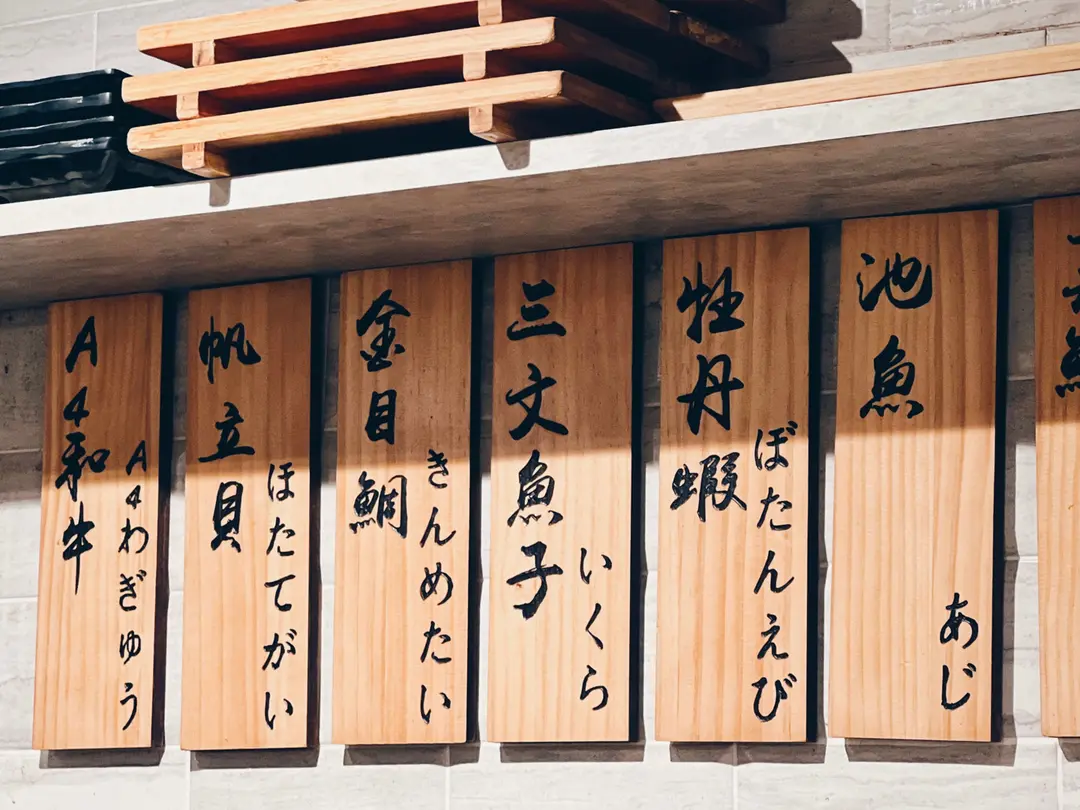 A4和牛
A4わぎゅう
帆立貝
ほたてがい
金目鯛
きんめたい
三文魚子
いくら
牡丹蝦
ぼたんえび
池魚
あじ